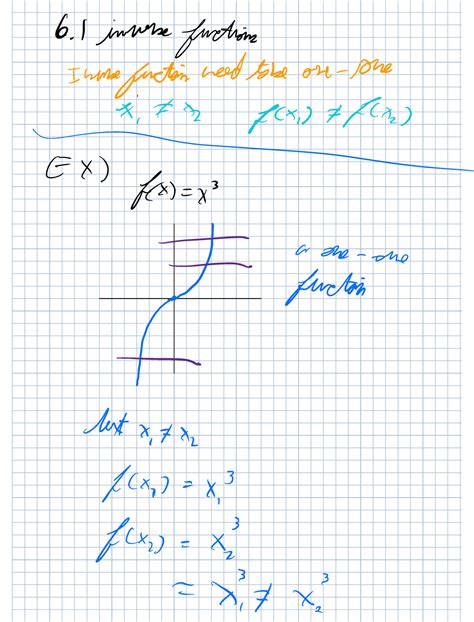 6.1 inverse functions
Inverse function need to be one-one
x₁ ≠ x₂ f(x₁) ≠ f(x₂)
(EX)
f(x) = x³
a one-one
function
test x₁ ≠ x₂
f(x₁) = x₁³
f(x₂) = x₂³
= x₁³ ≠ x₂³